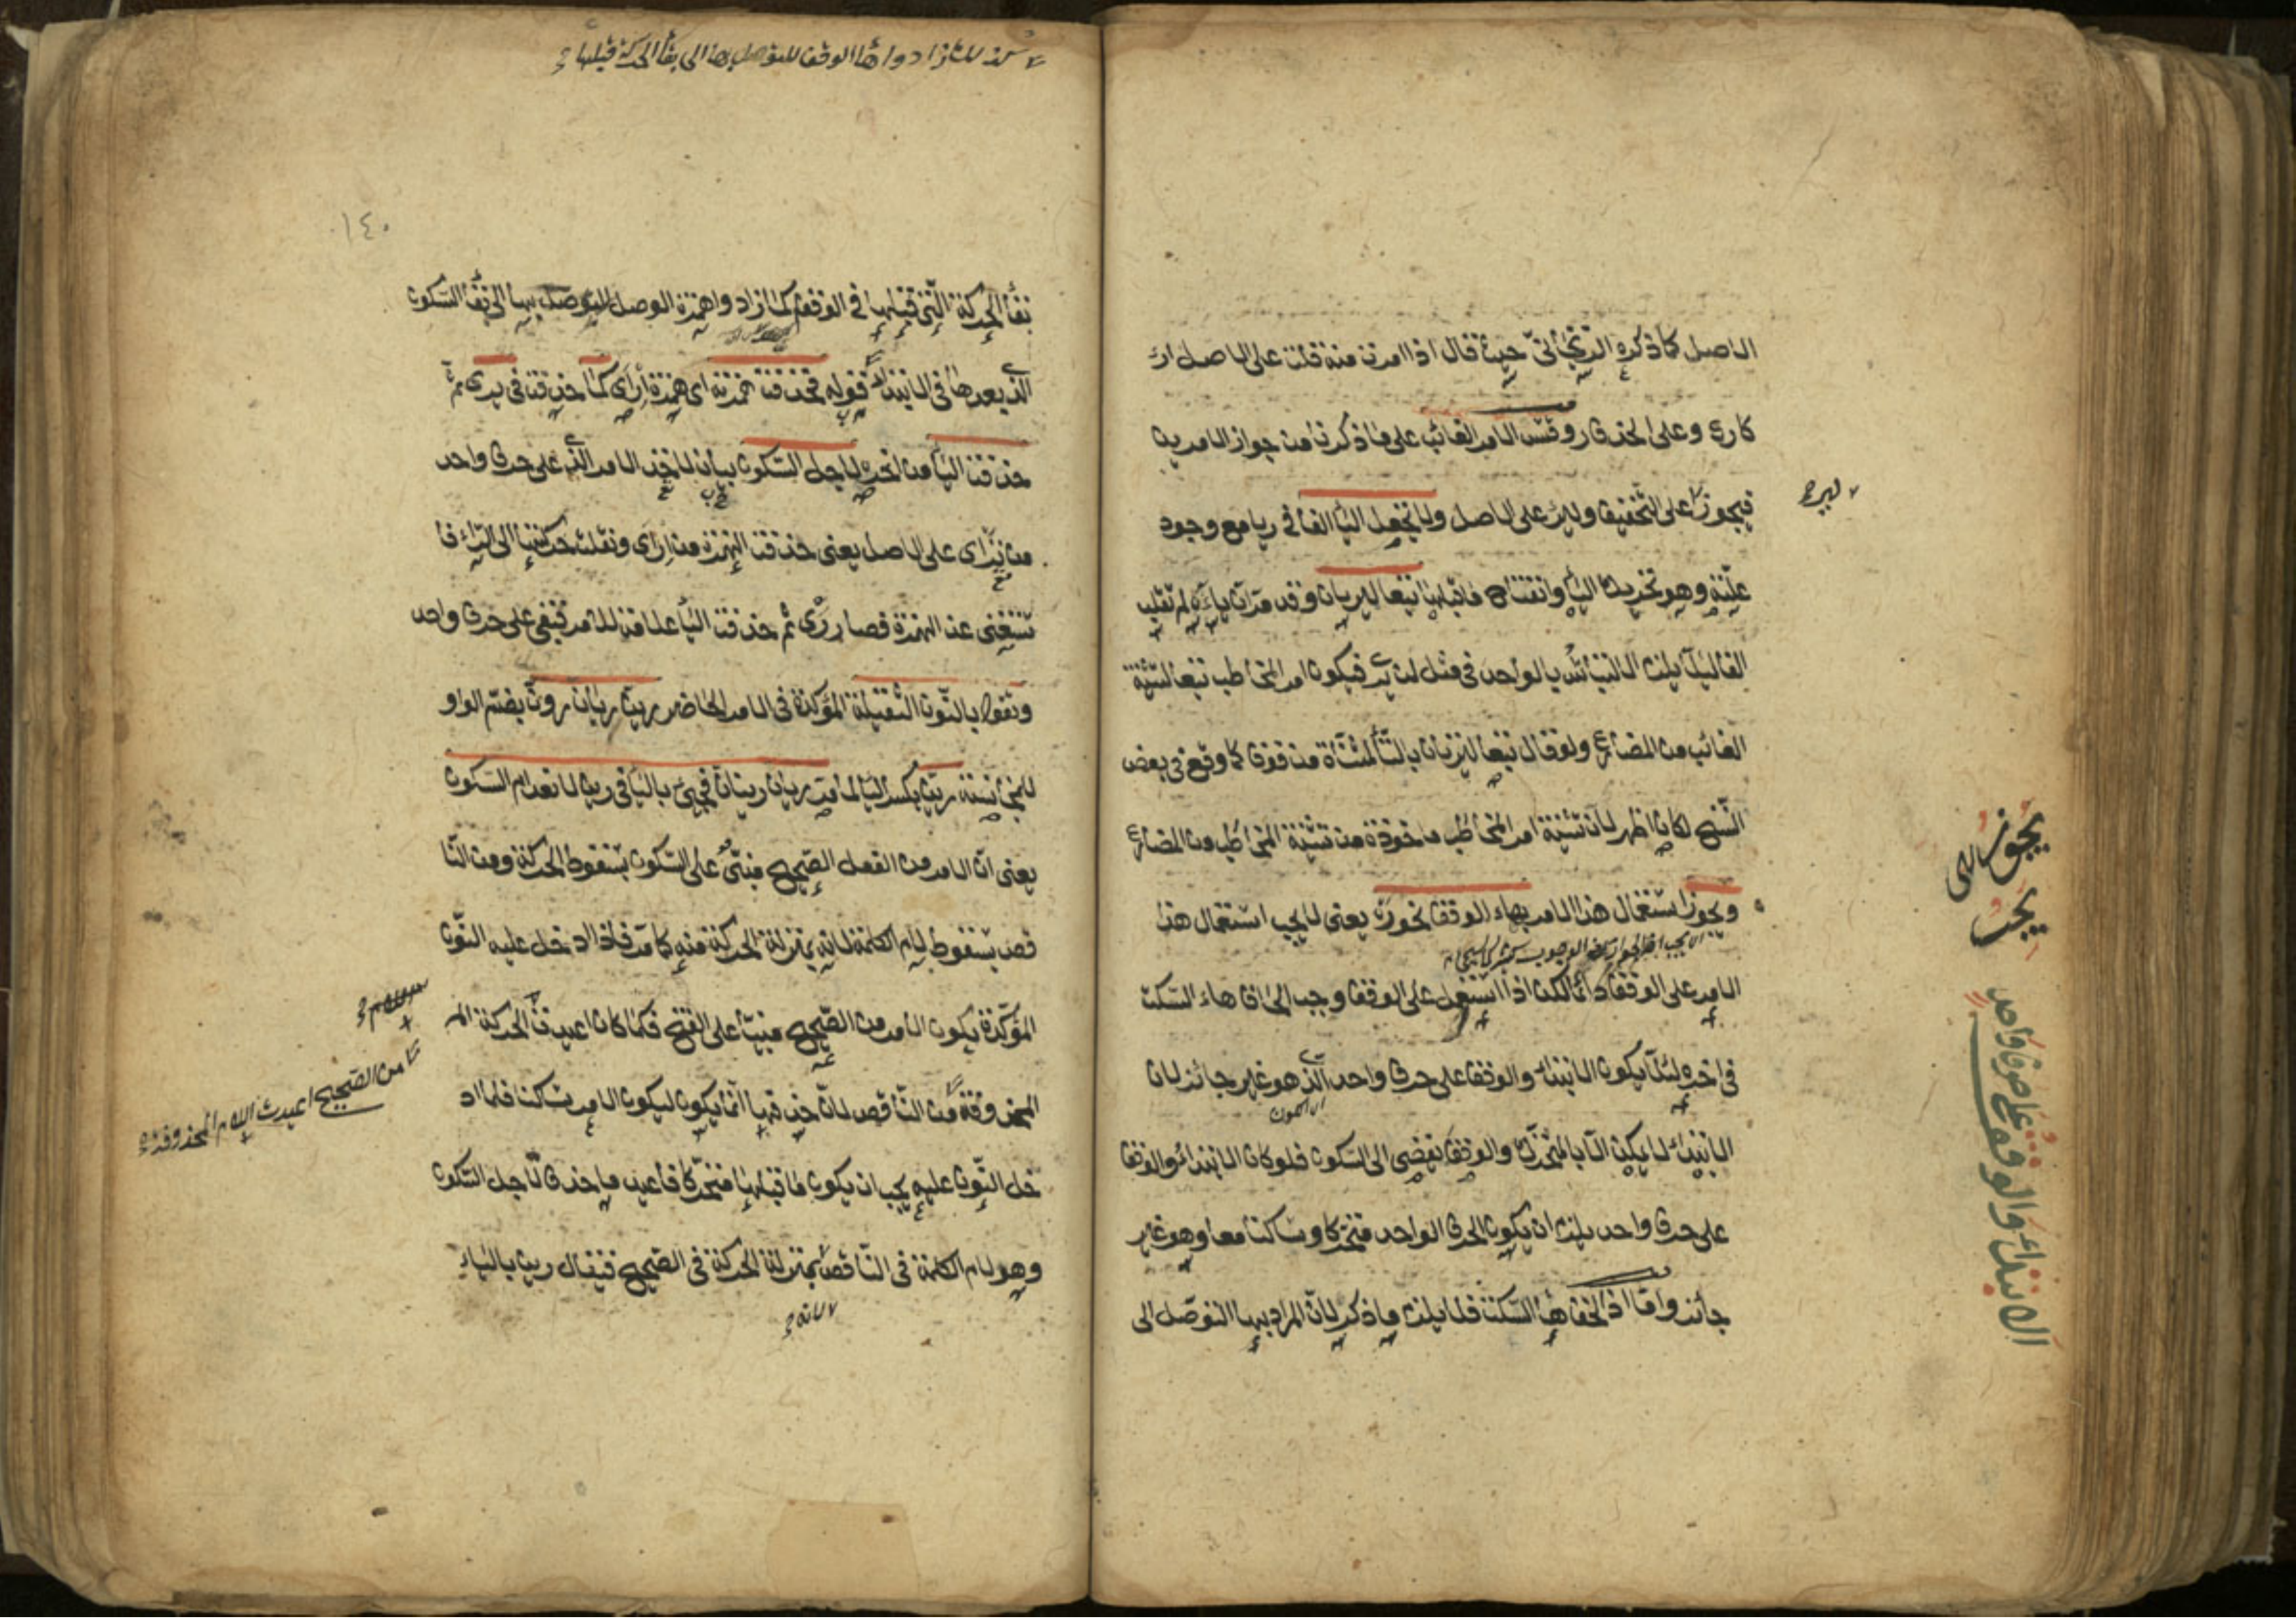 الاصل كما ذكره الزنجاني حيث قال اذا امرت منه قلت على الاصل ارء
كارع وعلى الحذف ر وقس الامر الغائب على ما ذكرنا من جواز الامرين
فيجوز على التخفيف ولير على الاصل ولا تجعل الياء الفا في ريا مع وجود
علته وهو تحريك الياء وانفتاح ما قبلها تبعا ليريان وقد مر ان ياءه لم تقلب
الفا لئلا يلزم الالتباس بالواحد في مثل لن يرى فيكون امر المخاطب تبعا لتثنية
الغائب من المضارع ولو قال تبعا لتريان بالتاء المثناة من فوق كما وقع في بعض
النسخ لكان اظهر لان تثنية امر المخاطب ماخوذة من تثنية المخاطب من المضارع
ويجوز استعمال هذا الامر بهاء الوقف نحو ره يعني لا يجب استعمال هذا
الامر على الوقف دائما لكن اذا استعمل على الوقف وجب الحاق هاء السكت
في اخره لئلا يكون الابتداء والوقف على حرف واحد الذي هو غير جائز لان
الابتداء لا يمكن الا بالمتحرك والوقف يفضي الى السكون فلو كان الابتداء والوقف
على حرف واحد يلزم ان يكون الحرف الواحد متحركا وساكنا معا وهو غير
جائز واما اذا لحقها هاء السكت فلا يلزم ما ذكر لان المراد بها التوصل الى
لير
يجوز
يجب
الابتداء والوقف على حرف واحد
كذلك زادوا هاء الوقف للتوصل بها الى بقاء الحركة قبلها
١٤٠
بقاء الحركة التي قبلها في الوقف كما زادوا همزة الوصل للتوصل بها الى بقاء السكون
الذي بعدها في الابتداء قوله فحذفت همزته اي همزة ارأي كما حذفت في يرى ثم
حذفت الياء من اخره لاجل السكون بيان لاخذ الامر الذي على حرف واحد
من ترأى على الاصل يعني حذفت الهمزة من ارأى ونقلت حركتها الى الراء فا
ستغنى عن الهمزة فصار رى ثم حذفت الياء علامة للامر فبقي على حرف واحد
وتقول بالنون الثقيلة المؤكدة في الامر الحاضر رين ريان رون بضم الواو
للمجانسة رين بكسر الياء لما مر ريان رينان فيجيء بالياء في رين لانعدام السكون
يعني ان الامر من الفعل الصحيح مبني على السكون بسقوط الحركة ومن النا
قص بسقوط لام الكلمة لانه بمنزلة الحركة منه كما مر فاذا ادخل عليه النون
المؤكدة يكون الامر من الصحيح مبنيا على الفتح فكما كان اعيدت الحركة
المحذوفة من الناقص لان حذفها انما يكون ليكون الامر ساكنا فلما اد
خل النون عليه يجب ان يكون ما قبلها متحركا فاعيد ما حذف لاجل السكون
وهو لام الكلمة في الناقص بمنزلة الحركة في الصحيح فيقال رين بالياء
لانه
من الصحيح اعيدت اللام المحذوفة